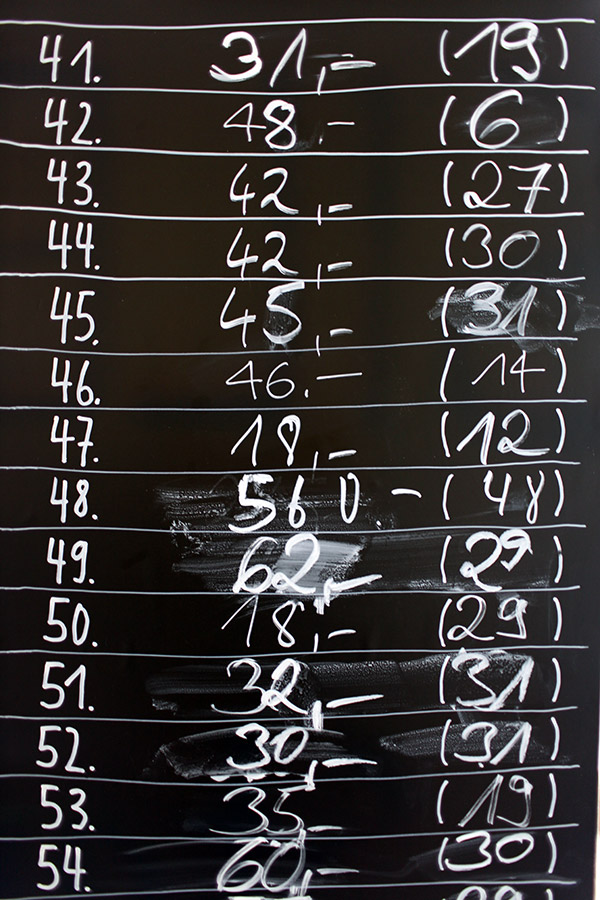 41. 31,- (19)
42. 48,- (6)
43. 42,- (27)
44. 42,- (30)
45. 45,- (31)
46. 46.- (14)
47. 18,- (12)
48. 560.- (48)
49. 62,- (29)
50. 18,- (29)
51. 32,- (31)
52. 30,- (31)
53. 35,- (19)
54. 60,- (30)